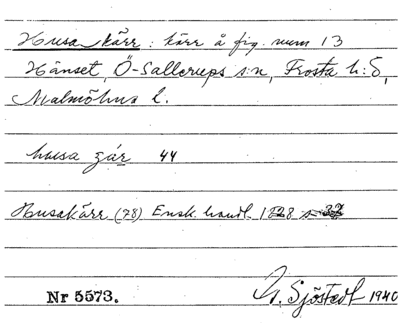 Husa kärr : kärr å fig. num 13
Hänset, Ö-Sallerups s:n, Frosta h:d,
Malmöhus l.
husa zár 44
Husakärr (78) Ensk. handl. 1828 s 32
Nr 5573.
G. Sjöstedt 1940